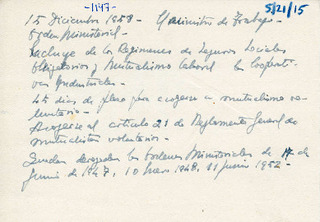 -1147-
5/21/15
15 Diciembre 1958 - Ministerio de Trabajo -
Orden Ministerial -
Excluye de los Regimenes de Seguros Sociales
Obligatorios y Mutualismo laboral las Cooperati-
vas Industriales -
45 dias de plazo para acogerse a mutualismo vo-
luntario -
Acogerse al articulo 21 de Reglamento General de
mutualismo voluntario -
Quedan derogadas las ordenes Ministeriales de 17 de
Junio de 1947, 10 Enero 1948, 11 junio 1952 -